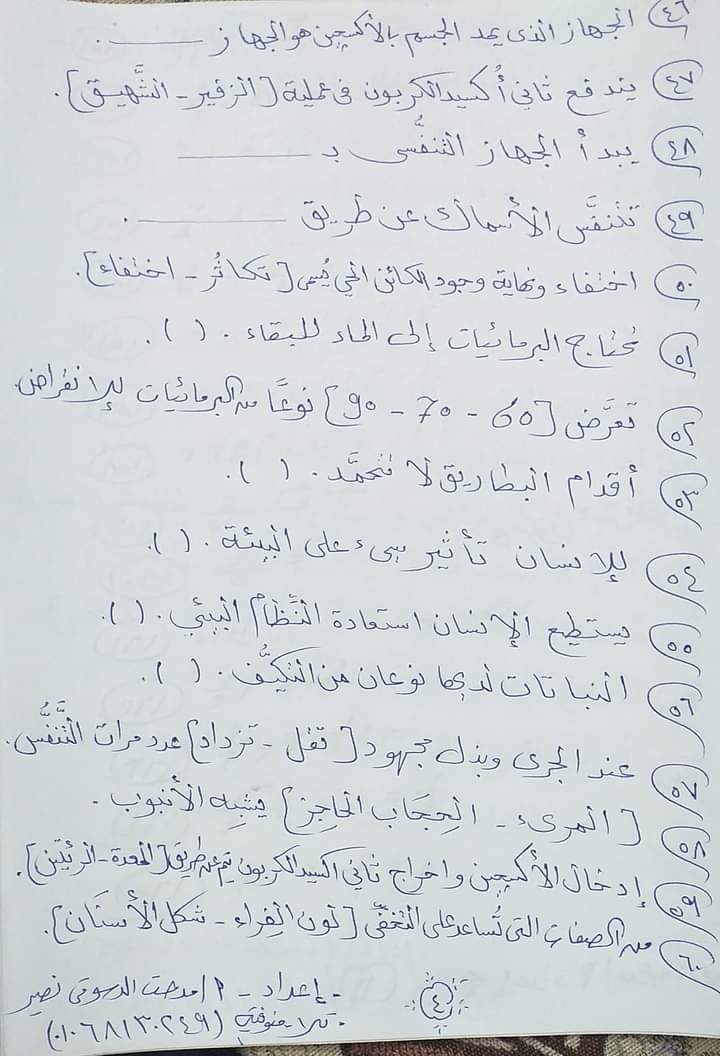 ٤٦ الجهاز الذى يمد الجسم بالأكسجين هو الجهاز ــــــ .
٤٧ يندفع ثانى أُكسيد الكربون فى عملية [الزفير - الشَّهيق].
٤٨ يبدأ الجهاز التنفُّسى بـ ــــــ
٤٩ تتنفَّس الأسماك عن طريق ــــــ .
٥٠ اختفاء ونهاية وجود الكائن الحي يُسمى [تكاثُر - اختفاء].
٥١ تحتاج البرمائيات إلى الماء للبقاء . ( ).
٥٢ تعرَّض [60 - 70 - 90] نوعًا من البرمائيات للإنقراض.
٥٣ أقدام البطاريق لا تتجمَّد . ( ).
٥٤ للإنسان تأثير سىء على البيئة . ( ).
٥٥ يستطيع الإنسان استعادة النِّظام البيئي . ( ).
٥٦ النباتات لديها نوعان من التكيُّف . ( ).
٥٧ عند الجرى وبذل مجهود [تقل - تزداد] عدد مرات التَّنفُّس.
٥٨ [المرىء - الحِجَاب الحَاجِز] يشبِه الأنبوب .
٥٩ إدخال الأكسجين واخراج ثانى اكسيد الكربون يتم عن طريق [المعدة - الرئتين].
٦٠ من الصفات التى تُساعد على التخفِّى [لون الفِراء - شكل الأسنَان].
- إعداد - م/ مدحت الدسوقى نصير
٤
تلا - منوفية (٠١٠٦٨١٣٠٢٤٩)